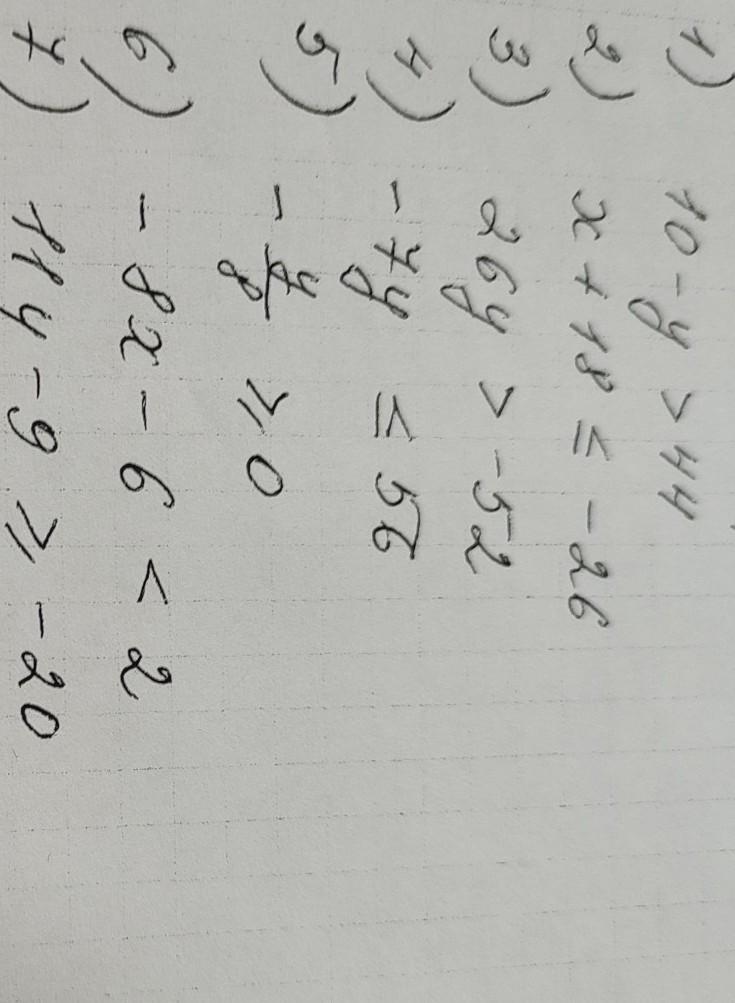 1) 10 - y > 44
2) x + 18 ≤ -26
3) 26y > -52
4) -7y ≤ 56
5) -y/8 ⩾ 0
6) -8x - 6 < 2
7) 11y - 9 ⩾ -20